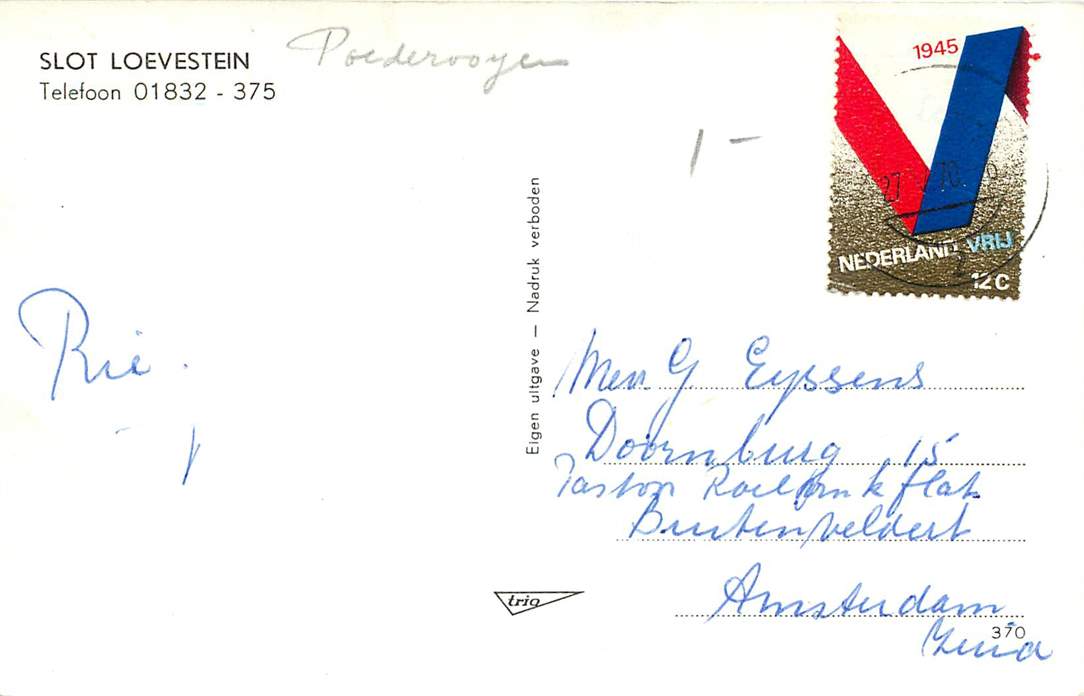 SLOT LOEVESTEIN
Telefoon 01832 - 375
Poederooyen
1 -
1945
NEDERLAND VRIJ
12C
27 70
Eigen uitgave — Nadruk verboden
Rie.
Mevr. G Eyssens
Doornburg 15
Pastor flat
Buitenveldert
Amsterdam
Zuid
trio
370